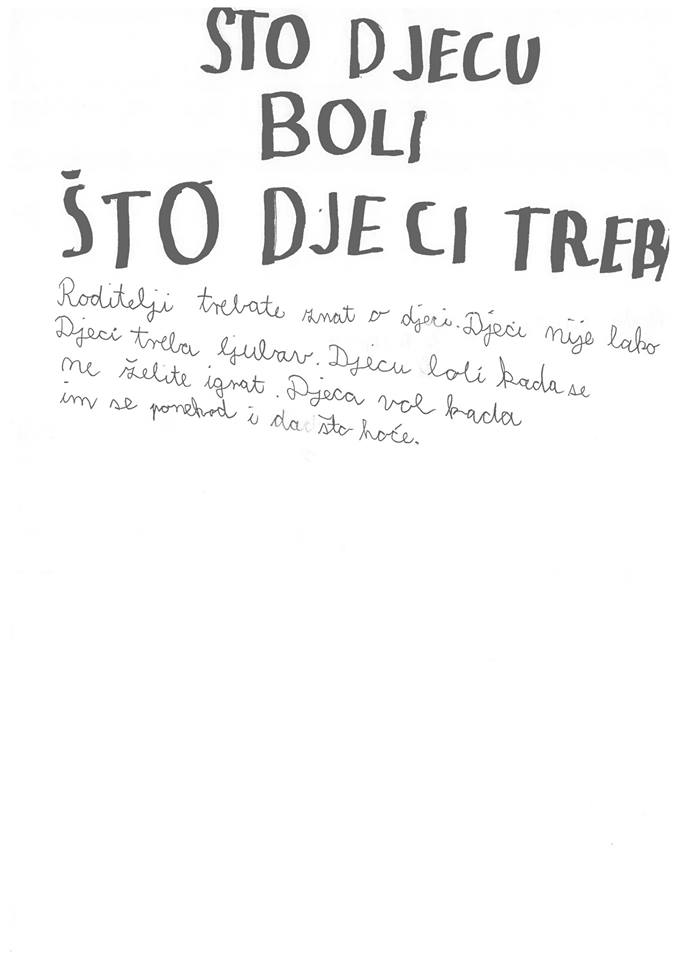 ŠTO DJECU
BOLI
ŠTO DJECI TREBA
Roditelji trebate znat o djeci. Djeci nije lako
Djeci treba ljubav. Djecu boli kada se
ne želite igrat. Djeca vol kada
im se ponekad i da što hoće.